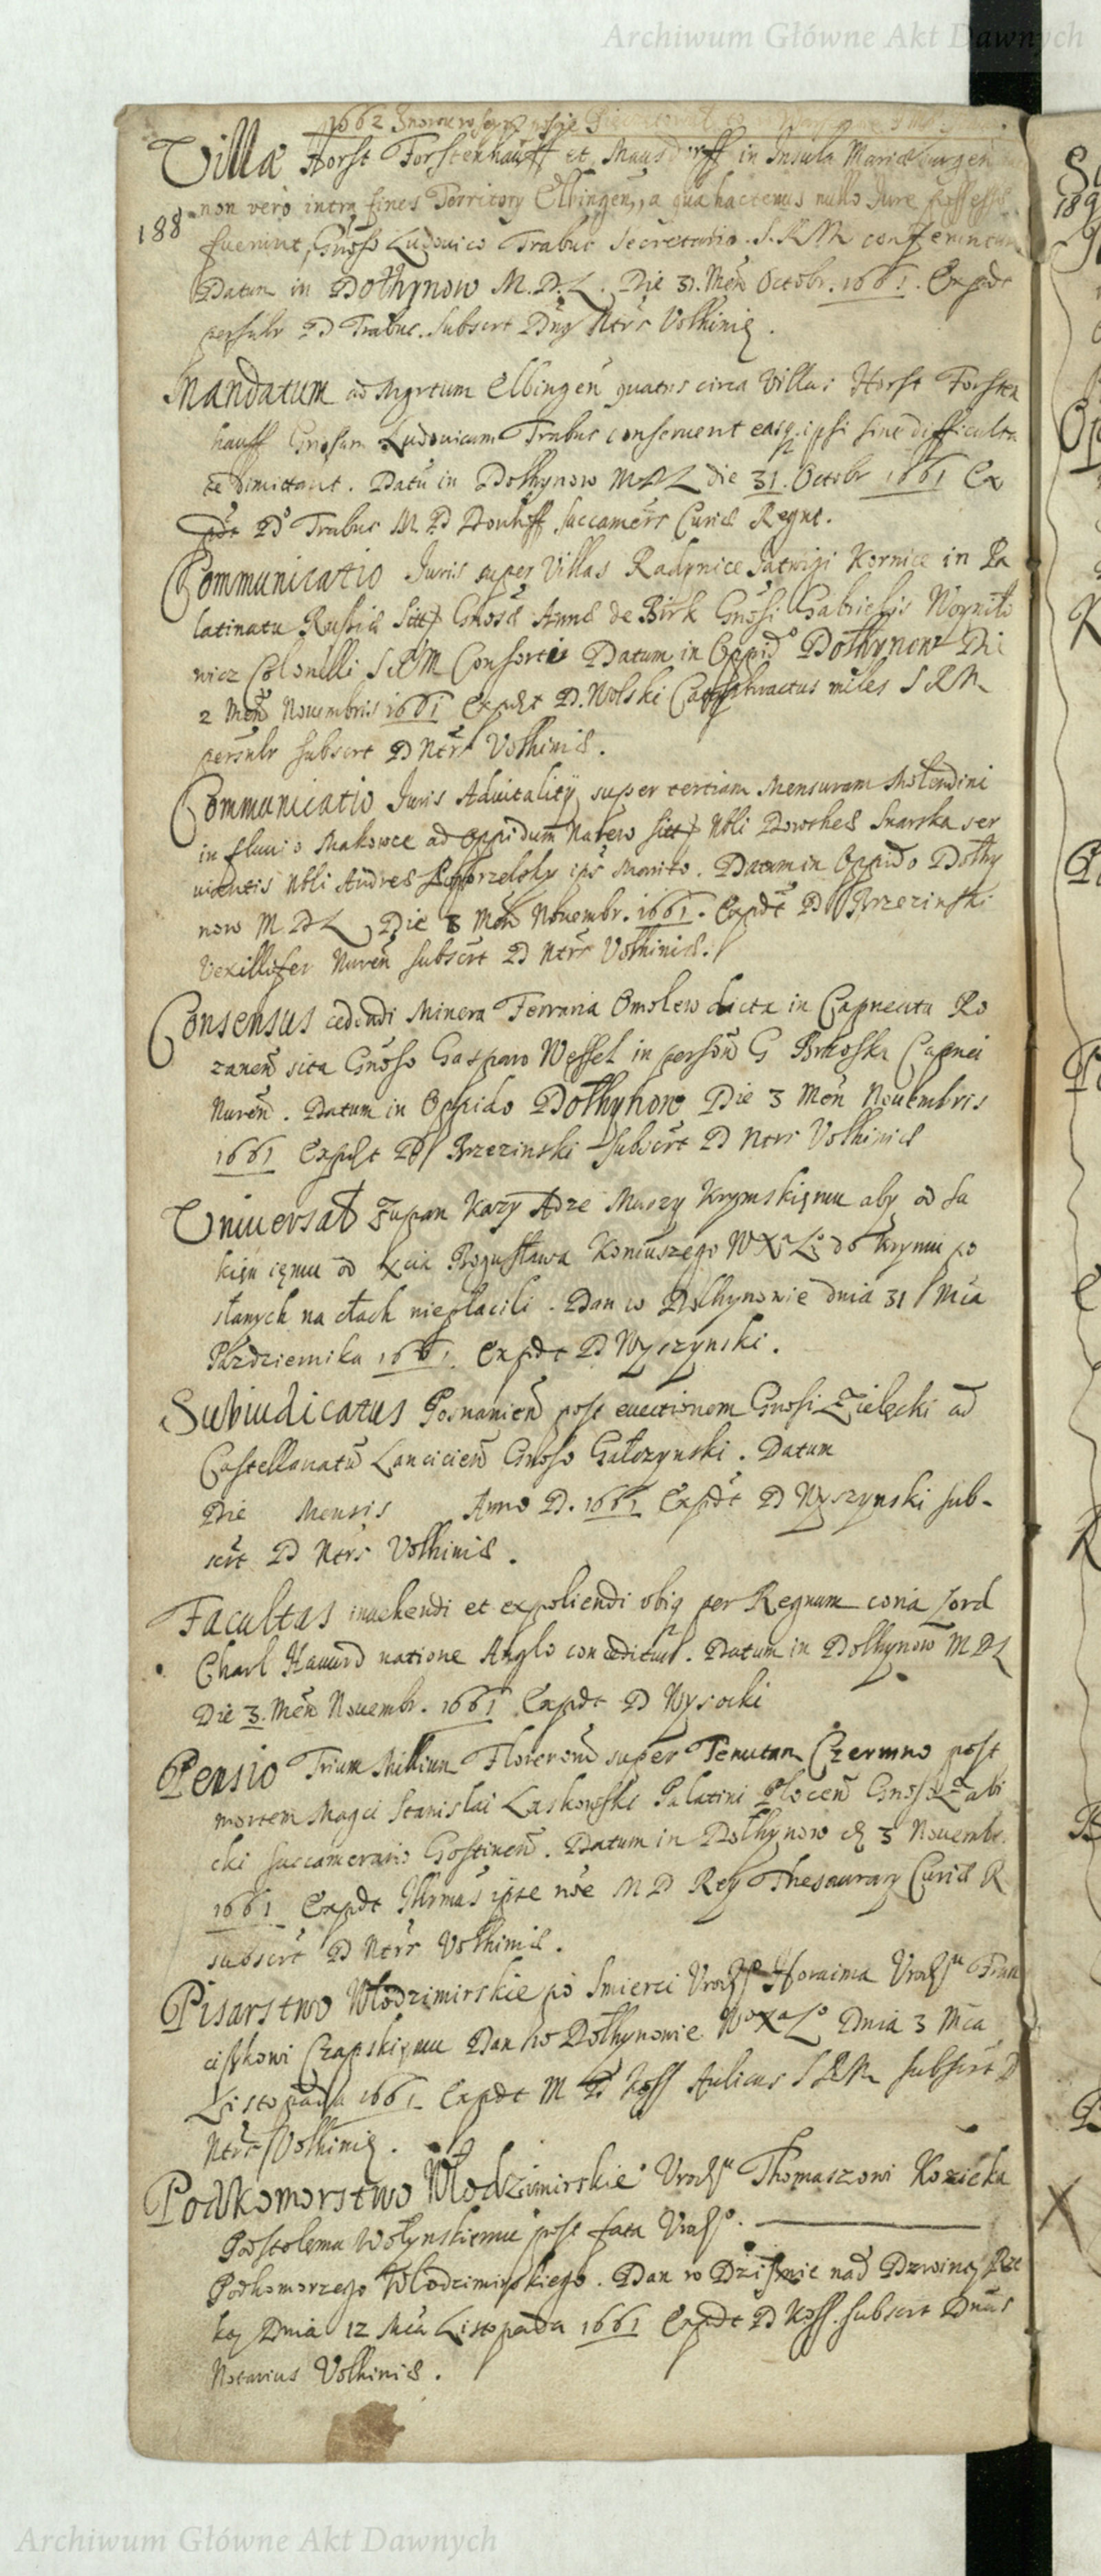 Archiwum Główne Akt Dawnych
1662
Villæ Horst Forstenhauff et Mausdorff in Insula Mariæburgen
188
non verò intra fines Territory Elbingen, a qua hactenus nullo Jure possessæ
fuerint, Gnoso Ludovico Trabuc Secretario S. R M conferuntur
Datum in Dołhynow M. D. L. Die 31. Men Octobr. 1661. Expdt
persulr D Trabuc. Subscrt Dnus Ntrs Volhiniæ.
Mandatum ad Mgrtum Elbingen quatns circa Villas Horst Forsten
hauff Gnosum Ludovicum Trabuc conservent easq ipsi sine difficulta
te dimittant. Datu in Dolhynow M D L die 31. Octobr 1661 Ex
pdt D Trabuc M D Donhoff succamers Curiæ Regni.
Communicatio Juris super Villas Radynice Jatwigi Kornice in Pa
latinatu Russiæ sitt Gnosæ Annæ de Birk Gnosi Gabrielis Woyniło
wicz Colonelli S R M Consorti Datum in Oppido Dołhynow Die
2 Men Novembris 1661 Expdt D. Wolski Cataphractus miles S R M
persnlr subscrt D Ntrs Volhiniæ.
Communicatio Juris Advitality super tertiam Mensuram Molendini
in fluvio Makowce ad Oppidum Narew sitt Nbli Dorotheæ Suarska ser
vientis Nbli Andreæ ips Marito. Datum in Oppido Dołhy
now M D L Die 3 Men Novembr. 1661. Expdt D Brzezinski
Vexillifer Nuren subscrt D Ntrs Volhiniæ.
Consensus cedendi Minera Ferraria Omolew dicta in Capneatu Ro
zanen sita Gnoso Gasparo Wessel in person G Capnei
Nuren. Datum in Oppido Dołhynow Die 3 Men Novembris
1661 Expdt D Brzezinski subscrt D Ntrs Volhiniæ
Uniwersał Zupan Kazy Adze Murzy Krymskiemu aby od su
kien iemu od Xcia Bogusława Koniuszego W X L do Krymu po
słanych na cłach niepłacili. Dan w Dołhynowie dnia 31 Mca
Pazdziernika 1661. Expdt D Wyszynski.
Subiudicatus Posnanien post evectionem Gnosi Zielecki ad
Castellanatu Lancicien Gnoso Gałczynski. Datum
Die Mensis Anno D. 1661 Expdt D Wyszynski sub-
scrt D Ntrs Volhiniæ.
Facultas invehendi et expoliendi ubiq per Regnum coria Lord
Charl Hauurd natione Anglo conceditur. Datum in Dolhynow M D L
Die 3. Men Novembr. 1661 Expdt D Wysocki
Pensio Trium Millium Florenorū super Tenutam Czermno post
mortem Magci Stanislai Laskowski Palatini Plocen Gnoso Zabi
cki succamerario Gostinen. Datum in Dołhynow d 3 Novembr.
1661 Expdt Illrmus ipse M D Rey Thesaurary Curiæ R
subscrt D Ntrs Volhiniæ.
Pisarstwo Włodzimirskie po smierci Vrodzo Horaima Vrodzu Fran
ciszkowi Czapskiemu Dan w Dołhynowie Wo Xa Lo Dnia 3 Mca
Listopada 1661 Expdt M D Koss Aulicus S R M subscrt D
Ntrs Volhiniæ.
Podkomorstwo Włodzimirskie Vrodzu Thomaszowi Kozieka
Podstolemu Wołynskiemu post fata Vrodzo.
Podkomorzego Włodzimirskiego. Dan w Dzisnie nad Dzwiną Rze
ką Dnia 12 Mca Listopada 1661 Expdt D Koss. subscrt Dnus
Notarius Volhiniæ.
Archiwum Główne Akt Dawnych